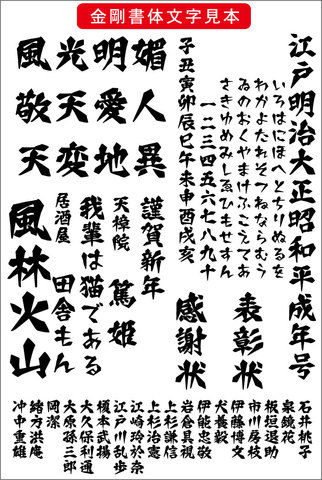 金剛書体文字見本
江戸明治大正昭和平成年号
いろはにほへとちりぬるを
わかよたれそつねならむう
ゐのおくやまけふこえてあ
さきゆめみしゑひもせすん
一二三四五六七八九十
子丑寅卯辰巳午未申酉戌亥
媚人異
明愛地
光天変
風敬天
表彰状
感謝状
謹賀新年
天樟院 篤姫
我輩は猫である
居酒屋 田舎もん
風林火山
石井桃子
泉鏡花
板垣退助
市川房枝
伊藤博文
犬養毅
伊能忠敬
岩倉具視
上杉謙信
上杉治憲
江崎玲於奈
江戸川乱歩
榎本武揚
大久保利通
大原孫三郎
岡潔
緒方洪庵
沖中重雄